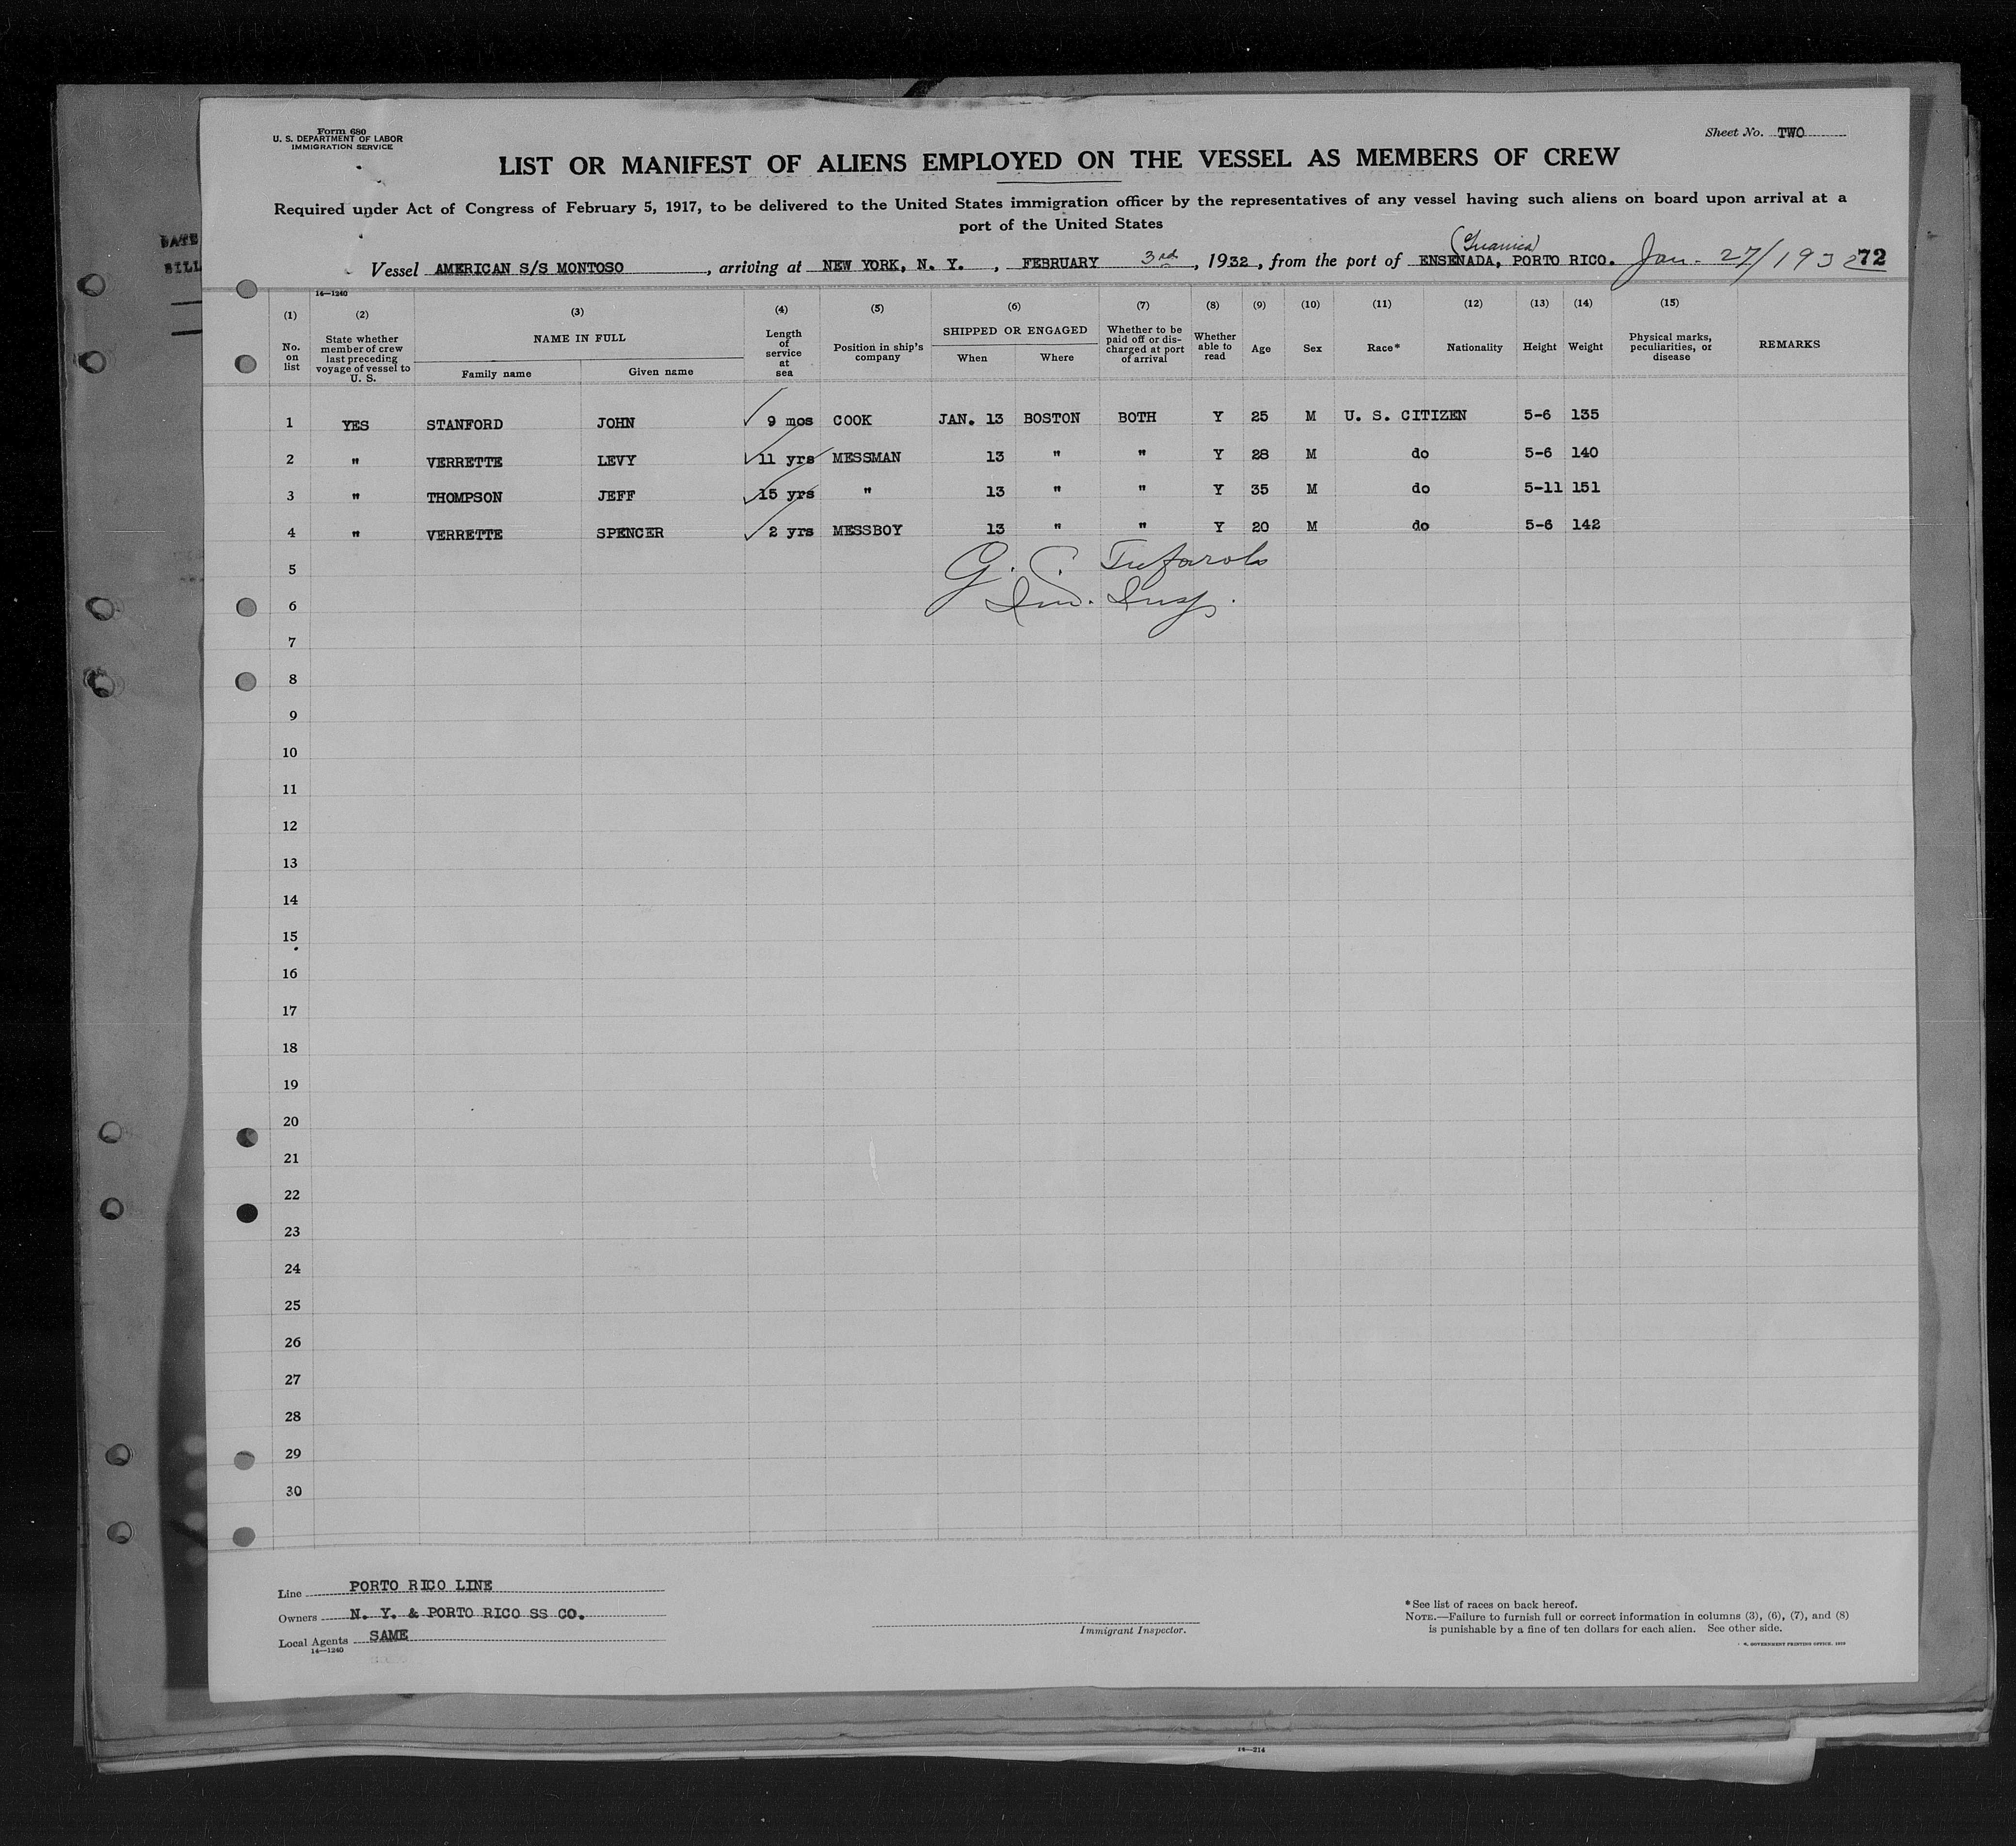 Form 680
U. S. DEPARTMENT OF LABOR
IMMIGRATION SERVICE
Sheet No. TWO
LIST OR MANIFEST OF ALIENS EMPLOYED ON THE VESSEL AS MEMBERS OF CREW
Required under Act of Congress of February 5, 1917, to be delivered to the United States immigration officer by the representatives of any vessel having such aliens on board upon arrival at a
port of the United States
(Guanica)
Vessel AMERICAN S/S MONTOSO, arriving at NEW YORK, N. Y., FEBRUARY 3rd, 1932, from the port of ENSENADA, PORTO RICO. Jan. 27/1932 72
DATE
BILL
14—1240
(1) (2) (3) (4) (5) (6) (7) (8) (9) (10) (11) (12) (13) (14) (15)
No. on list State whether member of crew last preceding voyage of vessel to U. S. NAME IN FULL Family name Given name Length of service at sea Position in ship's company SHIPPED OR ENGAGED When Where Whether to be paid off or discharged at port of arrival Whether able to read Age Sex Race* Nationality Height Weight Physical marks, peculiarities, or disease REMARKS
1 YES STANFORD JOHN 9 mos COOK JAN. 13 BOSTON BOTH Y 25 M U. S. CITIZEN 5-6 135
2 " VERRETTE LEVY 11 yrs MESSMAN 13 " " Y 28 M do 5-6 140
3 " THOMPSON JEFF 15 yrs " 13 " " Y 35 M do 5-11 151
4 " VERRETTE SPENCER 2 yrs MESSBOY 13 " " Y 20 M do 5-6 142
5 G. C.
6 Im. Insp.
7
8
9
10
11
12
13
14
15
16
17
18
19
20
21
22
23
24
25
26
27
28
29
30
Line PORTO RICO LINE
Owners N. Y. & PORTO RICO SS CO.
Local Agents SAME
14—1240
Immigrant Inspector.
*See list of races on back hereof.
NOTE.—Failure to furnish full or correct information in columns (3), (6), (7), and (8)
is punishable by a fine of ten dollars for each alien. See other side.
GOVERNMENT PRINTING OFFICE
14—214